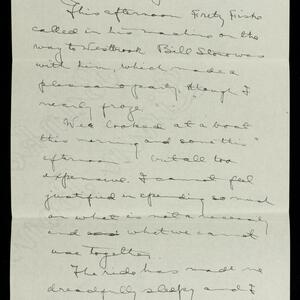 This afternoon Fritz Fiske
called in his machine on the
way to Westbrook Bill Stone was
with him, which made a
pleasant party, though I
nearly froze.
We looked at a boat
this morning and some this
afternoon but all too
expensive. I cannot feel
justified in spending so much
on what is not a necessity
and what we cannot
use together.
The ride has made me
dreadfully sleepy and I